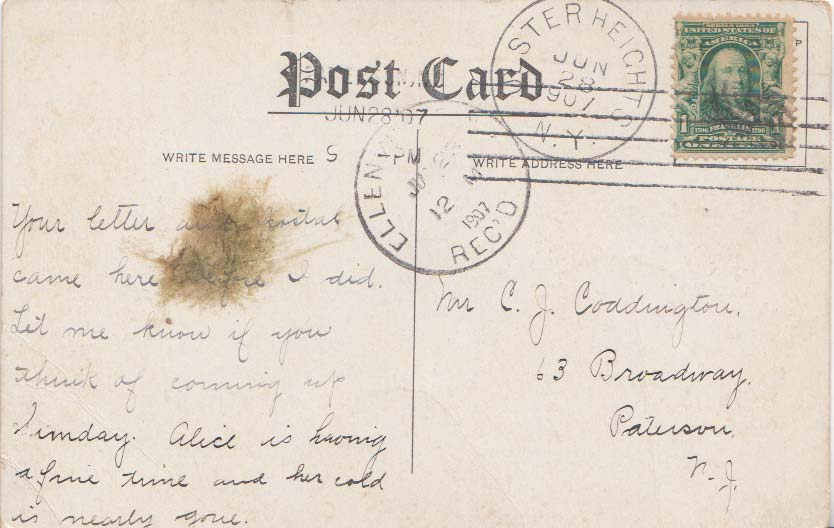 Post Card
JUN 28 '07
5 PM
WRITE MESSAGE HERE
WRITE ADDRESS HERE
STER HEIGHTS
JUN
28
1907
N.Y.
ELLEN
12 M
1907
REC'D
SERIES 1902
UNITED STATES OF
AMERICA
1706 FRANKLIN 1790
1 1
POSTAGE
ONE CENT
Your letter and postal
came here before I did.
Let me know if you
think of coming up
Sunday. Alice is having
a fine time and her cold
is nearly gone.
Mr C. J. Coddington,
63 Broadway,
Paterson,
N.J.